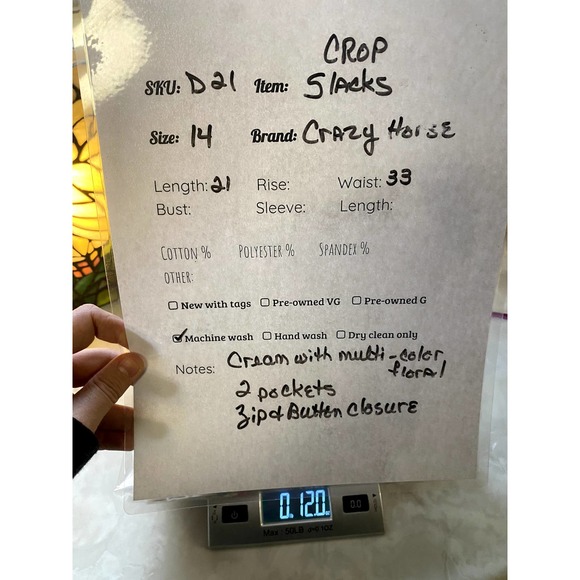 CROP
SKU: D21 Item: Slacks
Size: 14 Brand: Crazy Horse
Length: 21 Rise: Waist: 33
Bust: Sleeve: Length:
COTTON % POLYESTER % SPANDEX %
OTHER:
New with tags Pre-owned VG Pre-owned G
Machine wash Hand wash Dry clean only
Notes: Cream with multi-color
floral
2 pockets
Zip & Button closure
0.12.0
0.0
Max: 50LB